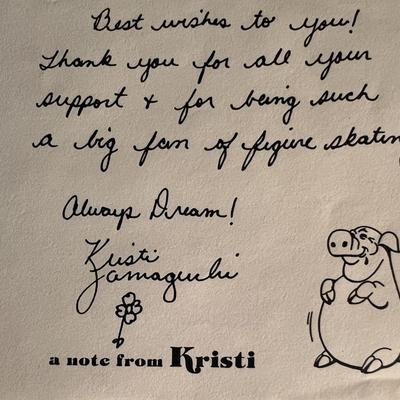 Best wishes to you!
Thank you for all your
support + for being such
a big fan of figure skating
Always Dream!
Kristi
Yamaguchi
a note from Kristi